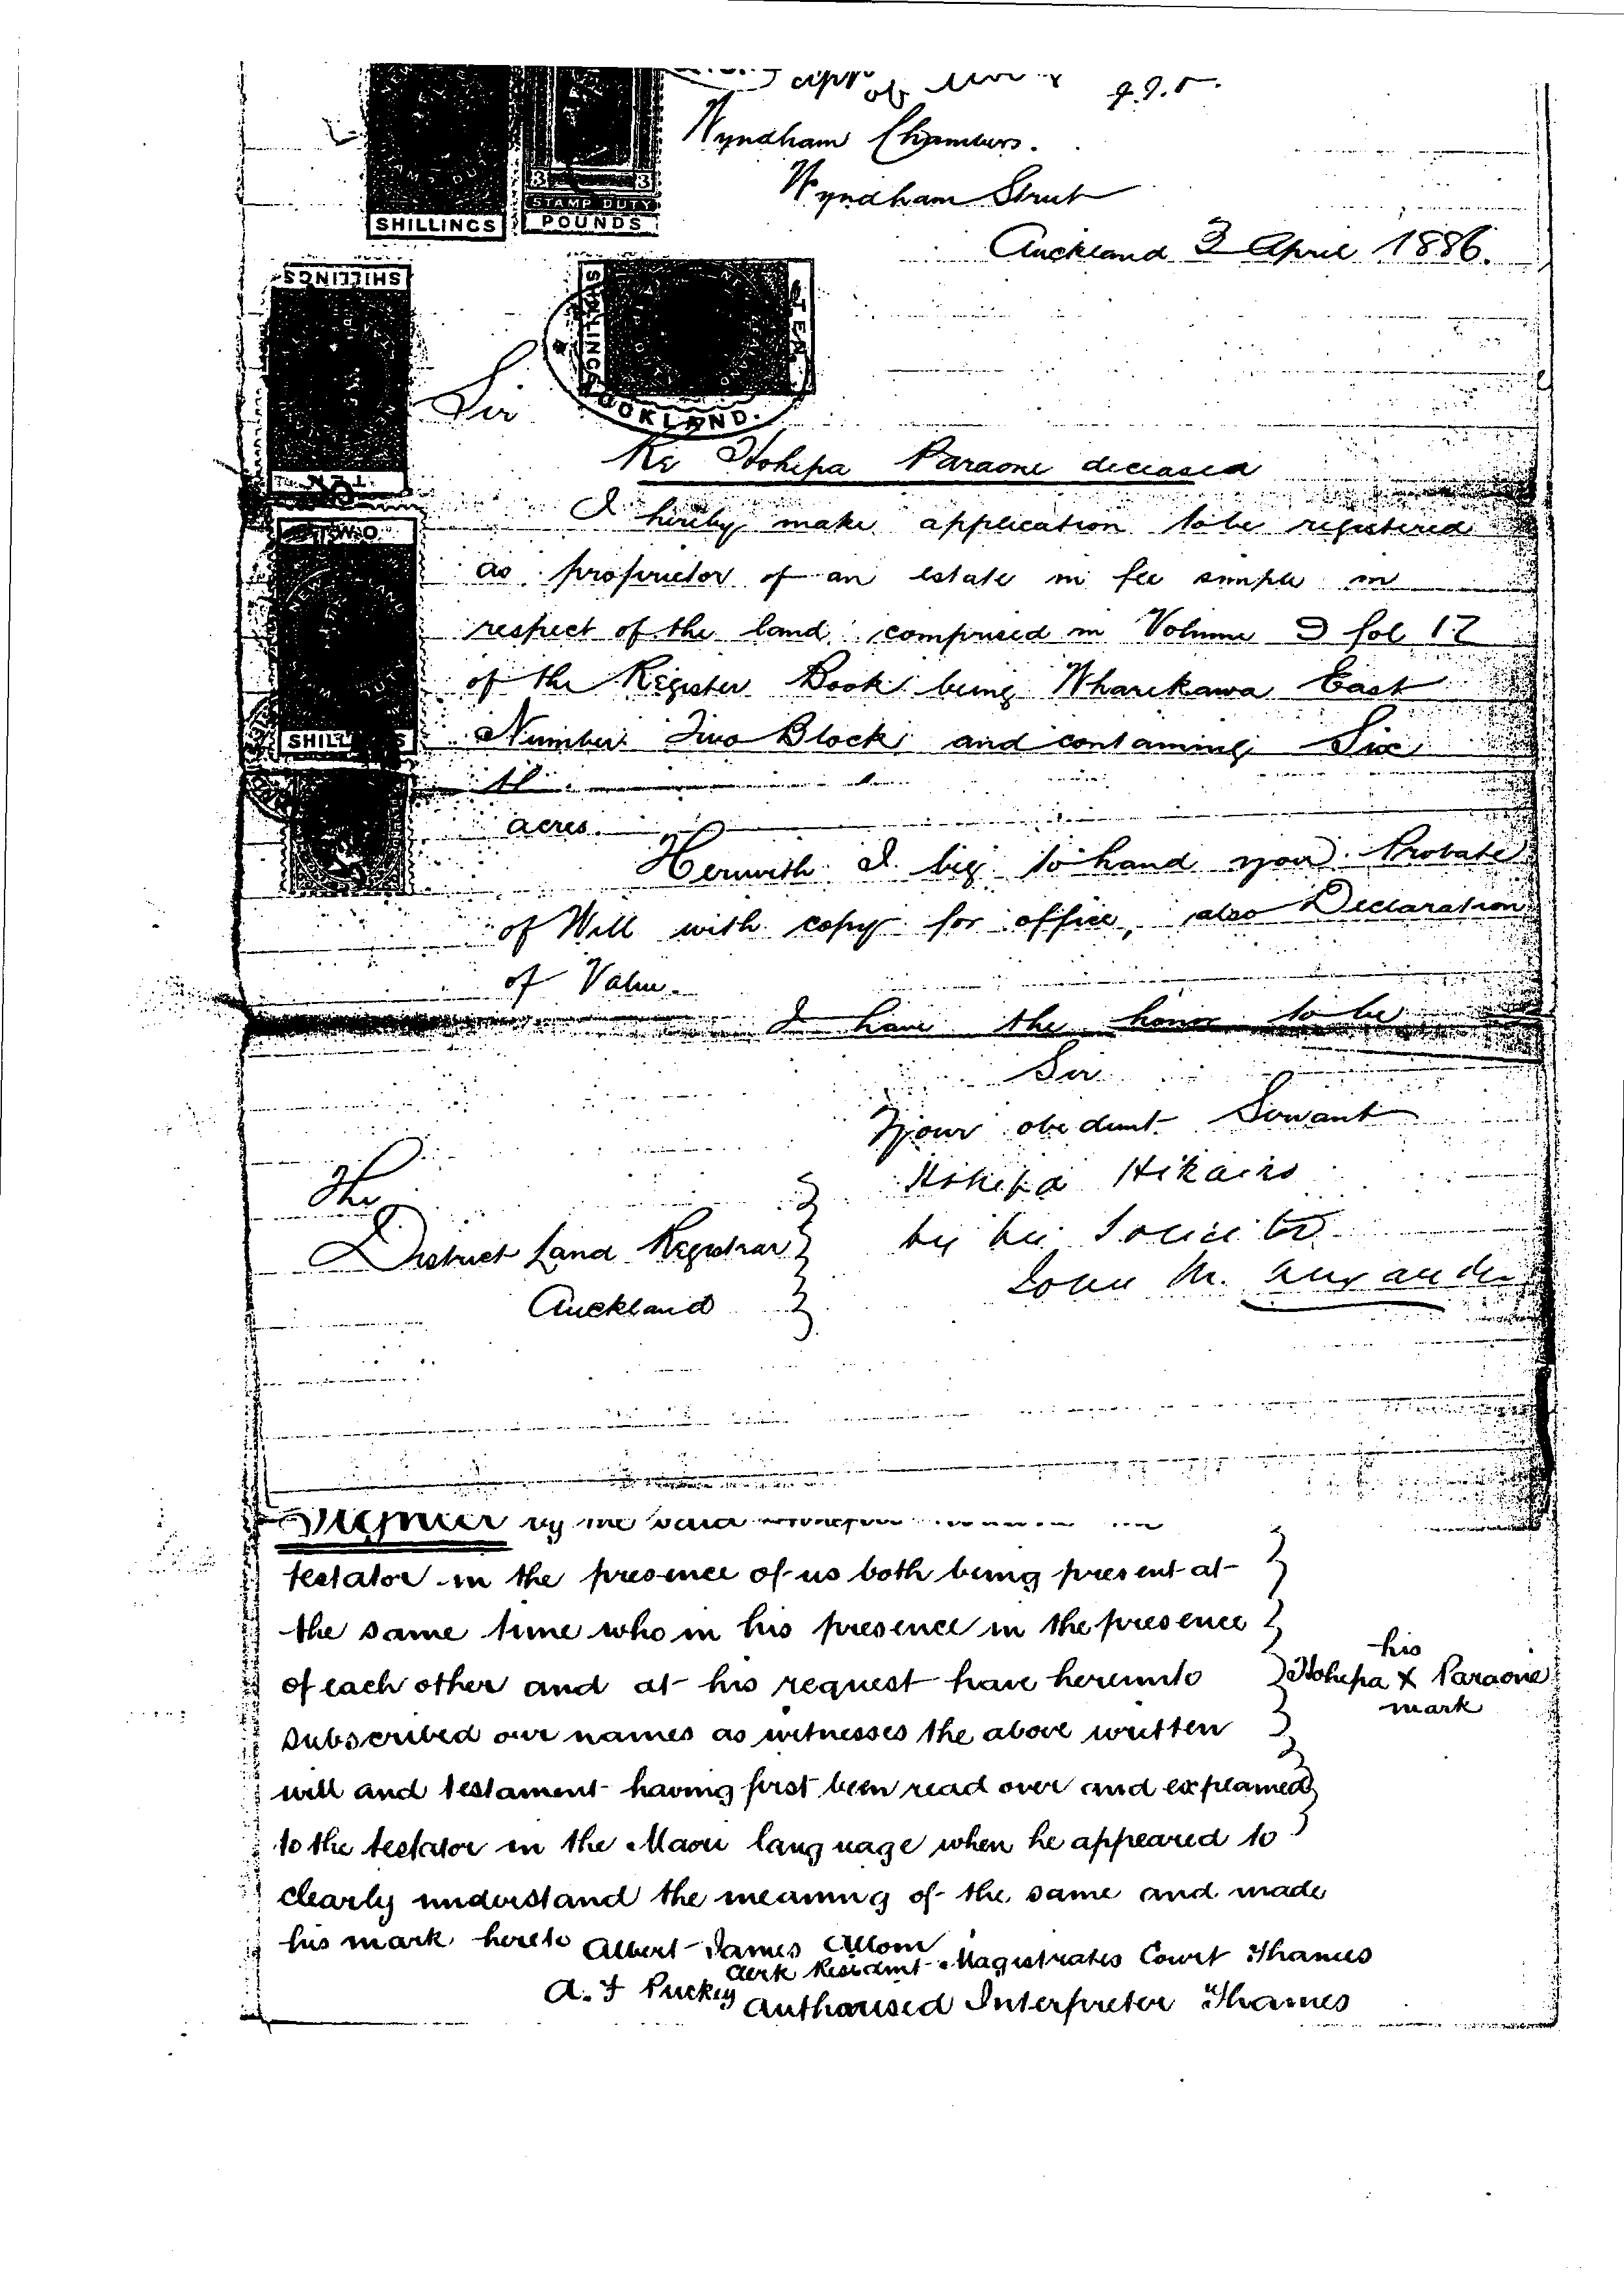 of
Wyndham Chambers.
Wyndham Street
Auckland 3 April 1886.
3 3
STAMP DUTY
SHILLINGS POUNDS
SHILLINGS
SHILLINGS
AUCKLAND.
Sir
Re Hohepa Paraone deceased
TWO
I hereby make application to be registered
as proprietor of an estate in fee simple in
respect of the land comprised in Volume fol 17
of the Register Book being Wharekawa East
Number Two Block and containing Six
SHILL S
acres.
Herewith I beg to hand you Probate
of Will with copy for office, also Declaration
of Value.
I have the honor to be
Sir
Your obedient Servant
Hohepa Hikairo
by his Solicitor
John M. Alexander
The
District Land Registrar
Auckland
Signed by the said
testator in the presence of us both being present at
the same time who in his presence in the presence
of each other and at his request have hereunto
subscribed our names as witnesses the above written
will and testament having first been read over and explained
to the testator in the Maori language when he appeared to
clearly understand the meaning of the same and made
his mark hereto
his
Hohepa X Paraone
mark
Albert James Allom
Clerk Resident Magistrates Court Thames
A. J Puckey
Authorised Interpreter Thames